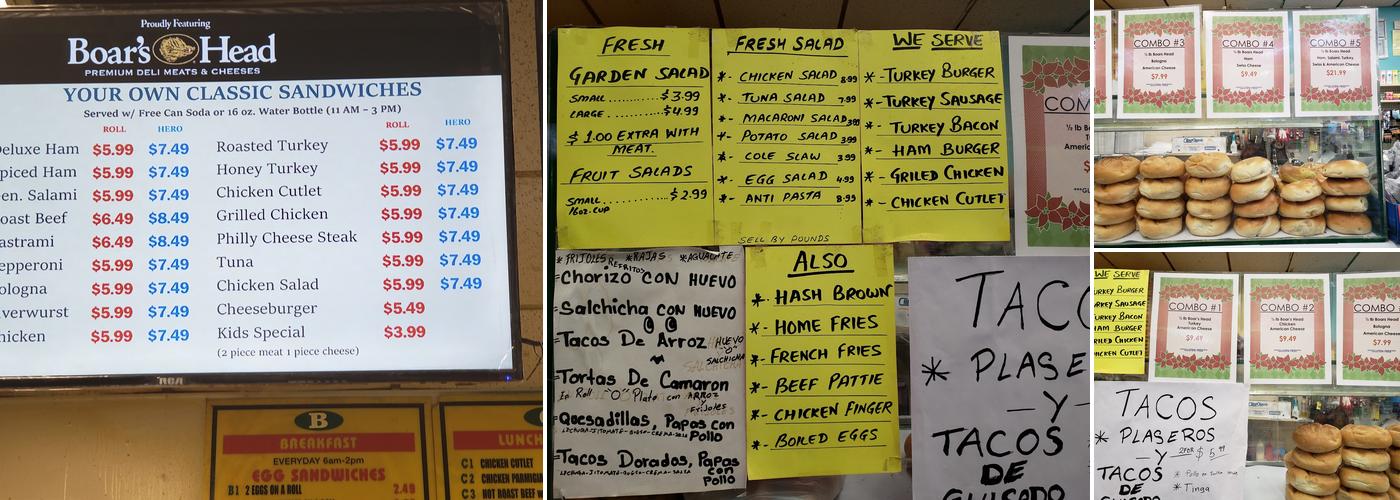 Proudly Featuring
Boar's Head
PREMIUM DELI MEATS & CHEESES
YOUR OWN CLASSIC SANDWICHES
Served w/ Free Can Soda or 16 oz. Water Bottle (11 AM – 3 PM)
ROLL HERO
eluxe Ham $5.99 $7.49
piced Ham $5.99 $7.49
en. Salami $5.99 $7.49
oast Beef $6.49 $8.49
astrami $6.49 $8.49
epperoni $5.99 $7.49
ologna $5.99 $7.49
verwurst $5.99 $7.49
hicken $5.99 $7.49
ROLL HERO
Roasted Turkey $5.99 $7.49
Honey Turkey $5.99 $7.49
Chicken Cutlet $5.99 $7.49
Grilled Chicken $5.99 $7.49
Philly Cheese Steak $5.99 $7.49
Tuna $5.99 $7.49
Chicken Salad $5.99 $7.49
Cheeseburger $5.49
Kids Special $3.99
(2 piece meat 1 piece cheese)
RCA
B
BREAKFAST
EVERYDAY 6am-2pm
EGG SANDWICHES
B1 2 EGGS ON A ROLL 2.49
LUNCH
C1 CHICKEN CUTLET
C2 CHICKEN PARMIGIAN
C3 HOT ROAST BEEF W
FRESH
GARDEN SALAD
SMALL .......... $3.99
LARGE .......... $4.99
$1.00 EXTRA WITH
MEAT.
FRUIT SALADS
SMALL ............ $2.99
16oz. CUP
FRESH SALAD
*- CHICKEN SALAD 8.99
*- TUNA SALAD 7.99
*- MACARONI SALAD 3.99
*- POTATO SALAD 3.99
*- COLE SLAW 3.99
*- EGG SALAD 4.99
*- ANTI PASTA 8.99
SELL BY POUNDS
WE SERVE
*-TURKEY BURGER
*-TURKEY SAUSAGE
*- TURKEY BACON
*- HAM BURGER
*- GRILED CHICKEN
*- CHICKEN CUTLET
COM
½ lb B
*FRIJOLES *RAJAS *AGUACATE
REFRITOS
Chorizo CON HUEVO
Salchicha CON HUEVO
Tacos De Arroz HUEVO
"O"
SALCHICHA
Tortas De Camaron
En Roll "O" Plato con ARROZ
Y
Frijoles
Quesadillas, Papas con
Pollo
Tacos Dorados, Papas
con
Pollo
ALSO
*- HASH BROWN
*- HOME FRIES
*- FRENCH FRIES
*- BEEF PATTIE
*- CHICKEN FINGER
*- BOILED EGGS
TACO
* PLASE
— Y —
TACOS
DE
GUISADO
COMBO #3
½ lb Boars Head
Bologna
American Cheese
$7.99
COMBO #4
½ lb Boars Head
Ham
American Cheese
$9.49
COMBO #5
½ lb Boars Head
Ham, Salami, Turkey
Swiss & American Cheese
$21.99
WE SERVE
URKEY BURGER
URKEY SAUSAGE
URKEY BACON
HAM BURGER
RILED CHICKEN
HICKEN CUTLET
COMBO #1
½ lb Boar's Head
Turkey
American Cheese
$9.49
COMBO #2
½ lb Boar's Head
Chicken
American Cheese
$9.49
COMBO
½ lb Boars
American
$7.99
TACOS
* PLASEROS
— Y 2 FOR $5.99
TACOS
DE
GUISADO
* Tinga